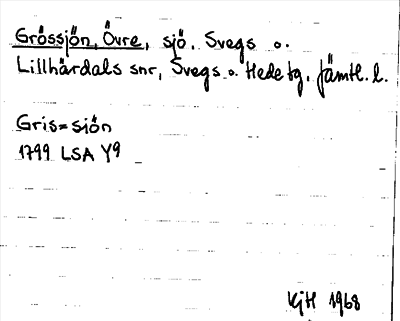 Grössjön, Övre, sjö. Svegs o.
Lillhärdals snr, Svegs o. Hede tg, Jämtl. l.
Gris=siön
1799 LSA Y9
KjH 1968